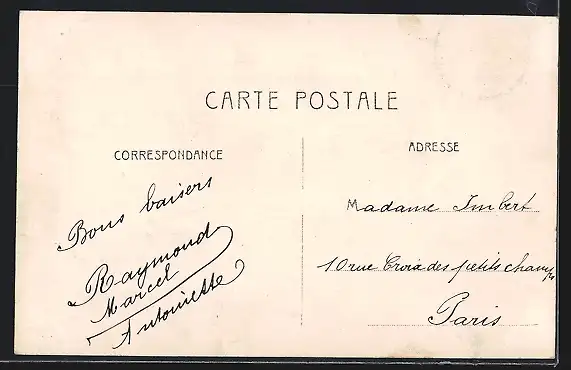 CARTE POSTALE
CORRESPONDANCE
Bons baisers
Raymond
Marcel
Antoinette
ADRESSE
Madame Imbert
10 rue Croix des petits champs
Paris